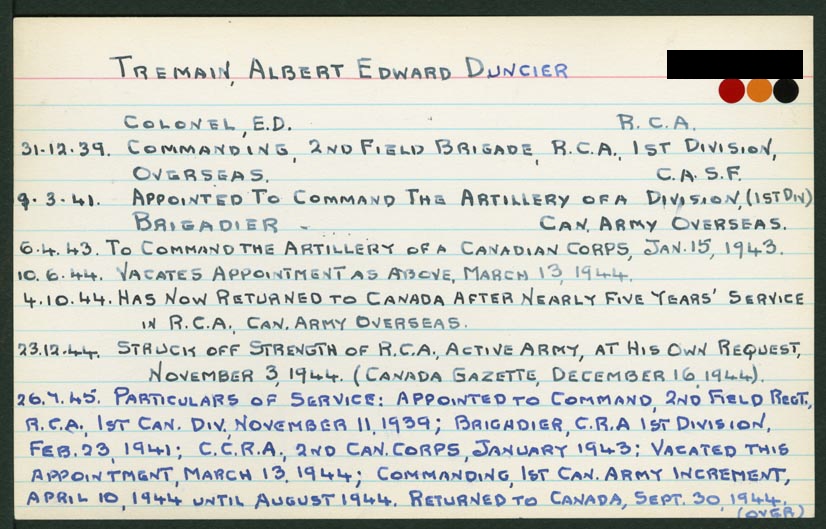 TREMAIN, ALBERT EDWARD DUNCIER
COLONEL, E.D. R.C.A.
31-12-39. COMMANDING, 2ND FIELD BRIGADE, R.C.A., 1ST DIVISION,
OVERSEAS. C.A.S.F.
9.3.41. APPOINTED TO COMMAND THE ARTILLERY OF A DIVISION, (1ST DIV)
BRIGADIER - CAN. ARMY OVERSEAS.
6.4.43. TO COMMAND THE ARTILLERY OF A CANADIAN CORPS, JAN. 15, 1943.
10.6.44. VACATES APPOINTMENT AS ABOVE, MARCH 13, 1944.
4.10.44. HAS NOW RETURNED TO CANADA AFTER NEARLY FIVE YEARS' SERVICE
IN R.C.A., CAN. ARMY OVERSEAS.
23.12.44. STRUCK OFF STRENGTH OF R.C.A., ACTIVE ARMY, AT HIS OWN REQUEST,
NOVEMBER 3, 1944. (CANADA GAZETTE, DECEMBER 16, 1944).
26.7.45. PARTICULARS OF SERVICE: APPOINTED TO COMMAND, 2ND FIELD REGT.,
R.C.A., 1ST CAN. DIV., NOVEMBER 11, 1939; BRIGADIER, C.R.A 1ST DIVISION,
FEB. 23, 1941; C.C.R.A., 2ND CAN. CORPS, JANUARY 1943; VACATED THIS
APPOINTMENT, MARCH 13, 1944; COMMANDING, 1ST CAN. ARMY INCREMENT,
APRIL 10, 1944 UNTIL AUGUST 1944. RETURNED TO CANADA, SEPT. 30, 1944.
(OVER)